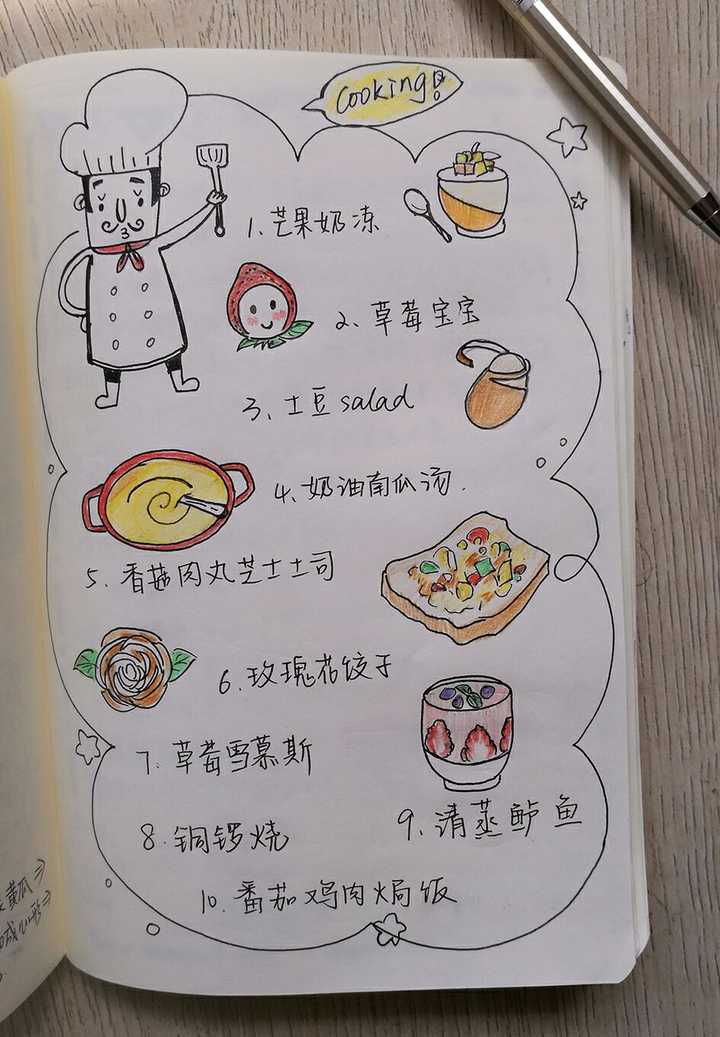 cooking!
1.芒果奶冻
2、草莓宝宝
3、土豆salad
4、奶油南瓜汤.
5、香菇肉丸芝士土司
6、玫瑰花饺子
7、草莓雪慕斯
8、铜锣烧
9、清蒸鲈鱼
10、番茄鸡肉焗饭
黄瓜⇒